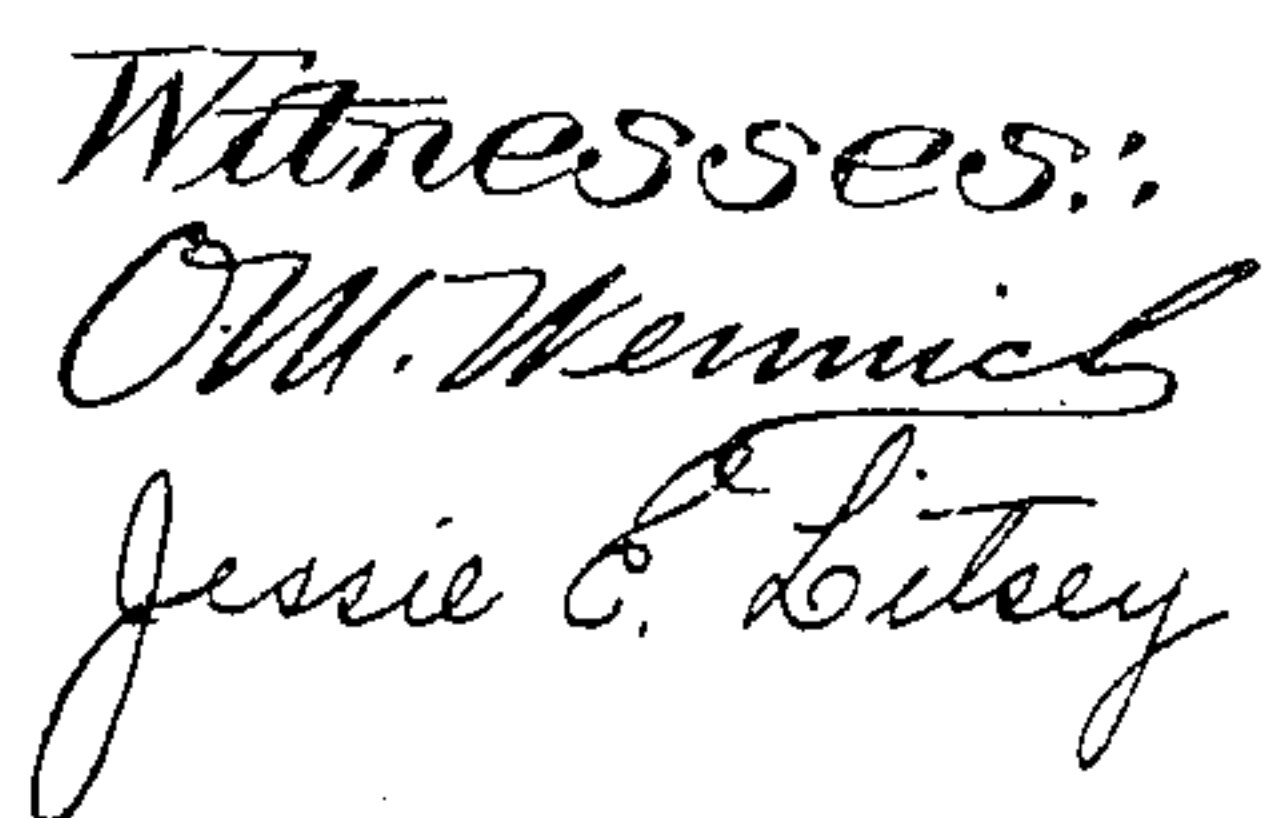 Witnesses:
O.M. Wernich
Jessie E. Litsey